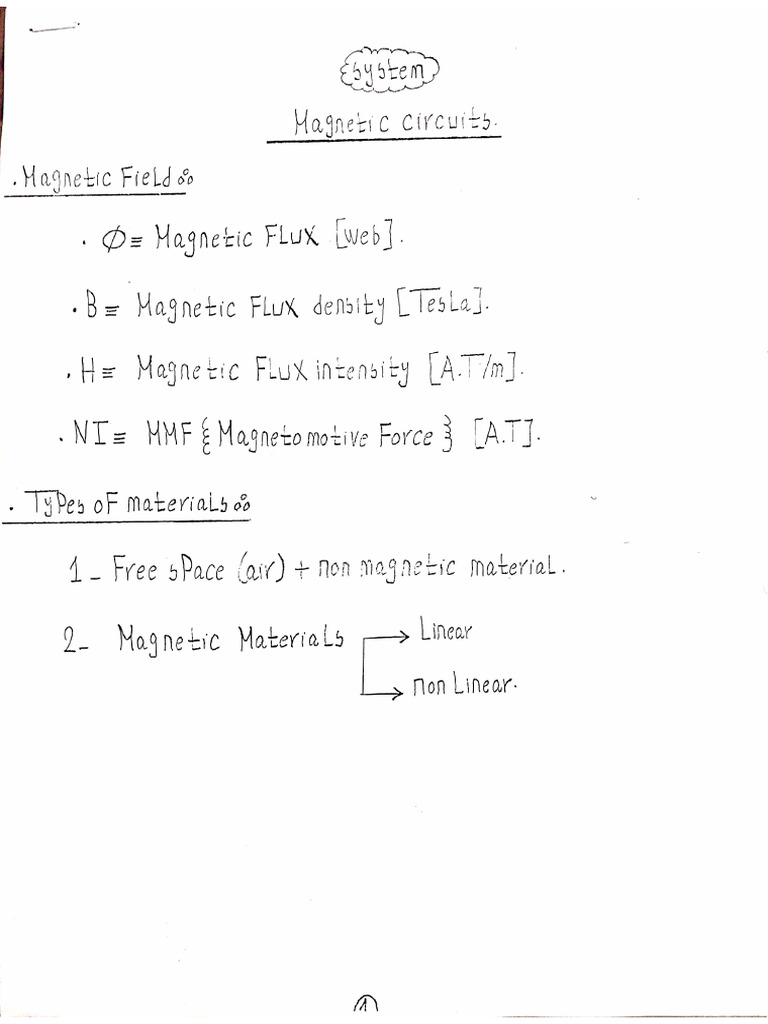 System
Magnetic circuits.
. Magnetic Field:
. Ø ≡ Magnetic Flux [web].
. B ≡ Magnetic Flux density [Tesla].
. H ≡ Magnetic Flux intensity [A.T/m].
. NI ≡ MMF { Magnetomotive Force } [A.T].
. Types of materials:
1 - Free space (air) + non magnetic material.
2 - Magnetic Materials → Linear
→ non Linear.
1